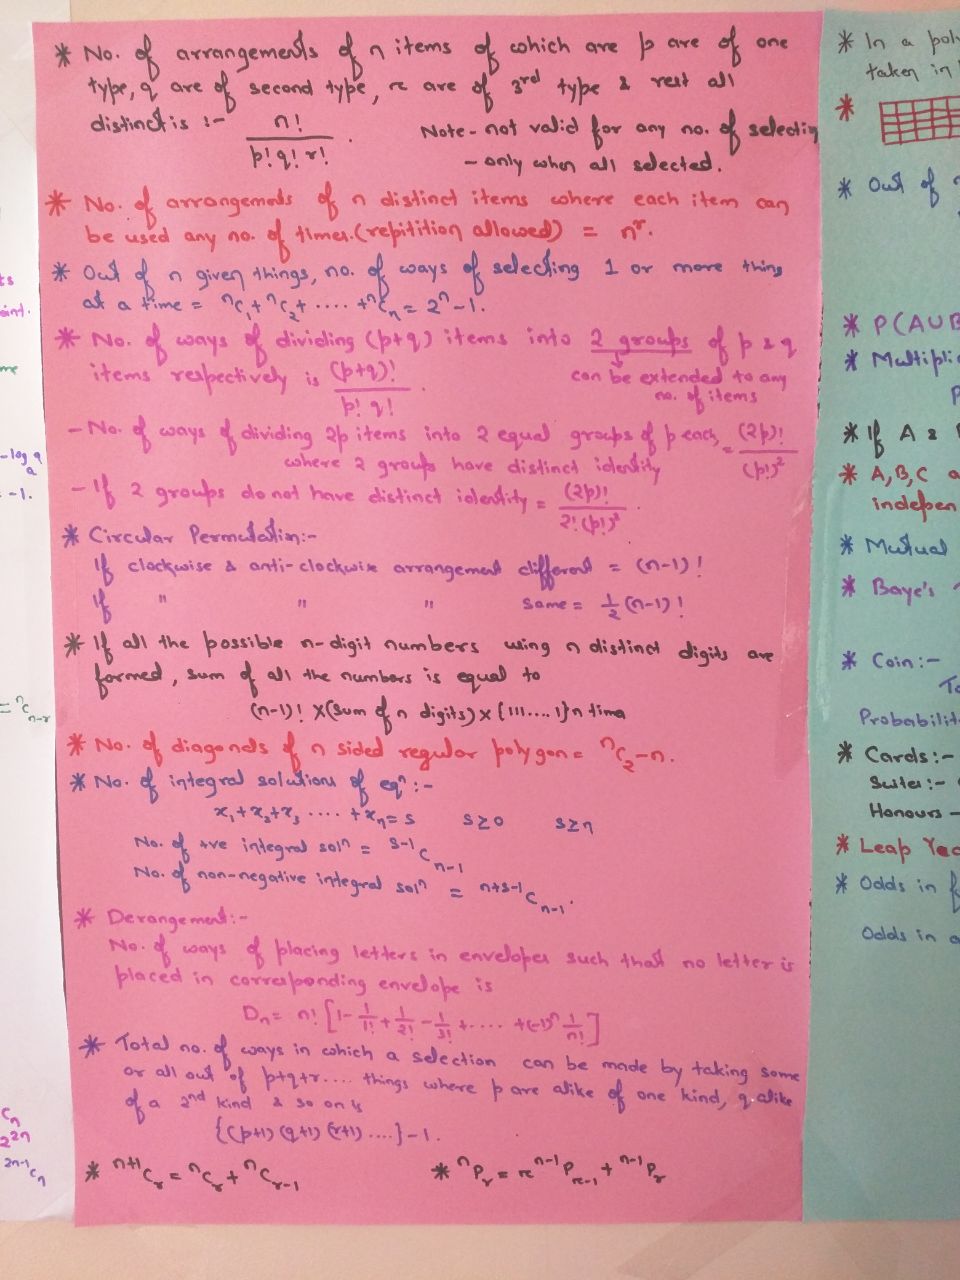 * No. of arrangements of n items of which are p are of one
type, q are of second type, r are of 3rd type & rest all
distinct is :- n! / p! q! r!
Note - not valid for any no. of selectin
- only when all selected.
* No. of arrangements of n distinct items where each item can
be used any no. of times. (repitition allowed) = nʳ.
* Out of n given things, no. of ways of selecting 1 or more thing
at a time = ⁿC₁ + ⁿC₂ + .... + ⁿCₙ = 2ⁿ - 1.
* No. of ways of dividing (p+q) items into 2 groups of p & q
items respectively is (p+q)! / p! q! .
can be extended to any
no. of items
- No. of ways of dividing 2p items into 2 equal groups of p each, = (2p)! / (p!)²
where 2 groups have distinct identity
- If 2 groups do not have distinct identity = (2p)! / 2! (p!)² .
* Circular Permutation:-
If clockwise & anti-clockwise arrangement different = (n-1)!
If " " " same = ½ (n-1)!
* If all the possible n-digit numbers using n distinct digits are
formed, sum of all the numbers is equal to
(n-1)! X (sum of n digits) x {111.... 1} n time
* No. of diagonals of n sided regular polygon = ⁿC₂ - n.
* No. of integral solutions of eqⁿ :-
x₁ + x₂ + x₃ .... + xₙ = s s≥0 s≥n
No. of +ve integral solⁿ = ˢ⁻¹Cₙ₋₁
No. of non-negative integral solⁿ = ⁿ⁺ˢ⁻¹Cₙ₋₁.
* Derangement:-
No. of ways of placing letters in envelopes such that no letter is
placed in corresponding envelope is
Dₙ = n! [1 - 1/1! + 1/2! - 1/3! + .... + (-1)ⁿ 1/n!]
* Total no. of ways in which a selection can be made by taking some
or all out of p+q+r.... things where p are alike of one kind, q alike
of a 2nd kind & so on is
{(p+1) (q+1) (r+1) ....} - 1.
* ⁿ⁺¹Cᵣ = ⁿCᵣ + ⁿCᵣ₋₁ * ⁿPᵣ = r ⁿ⁻¹Pᵣ₋₁ + ⁿ⁻¹Pᵣ
* In a pol
taken in
*
* Out of
* P(AUB
* Multiplic
P
* If A &
* A, B, C a
indepen
* Mutual
* Baye's
* Coin:-
To
Probabilit
* Cards:-
Suites:-
Honours -
* Leap Yea
* Odds in f
Odds in a
ts
oint.
me
- log a
a
= -1.
= ⁿCₙ₋ᵣ
Cₙ
2²ⁿ
²ⁿ⁻¹Cₙ